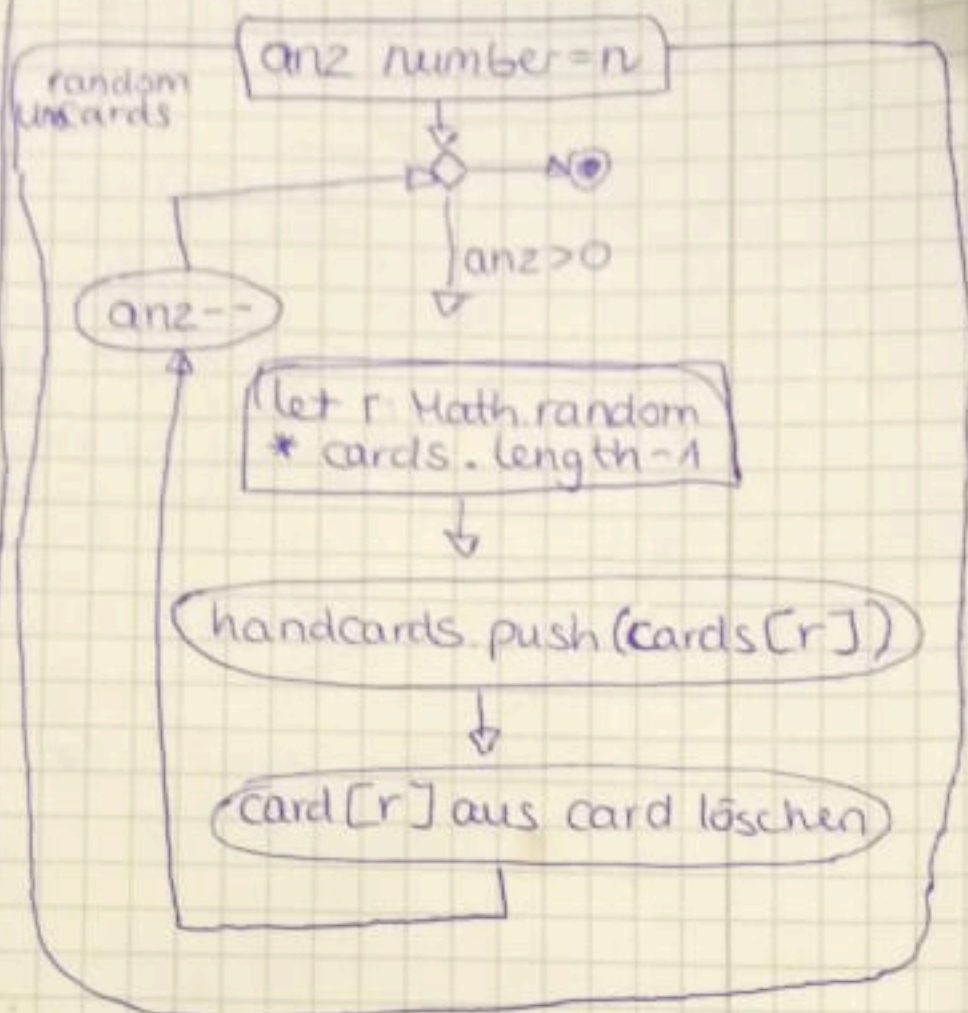 anz number=n
random
Cards
anz>0
anz--
let r Math.random
* cards.length-1
handcards.push(cards[r])
card[r] aus card löschen